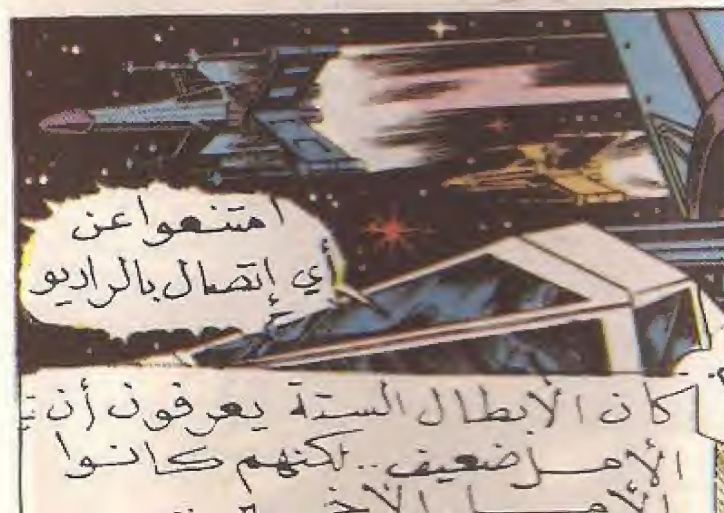 امتنعوا عن
أي إتصال بالراديو
كان الأبطال الستة يعرفون أن
الأمل ضعيف.. لكنهم كانوا